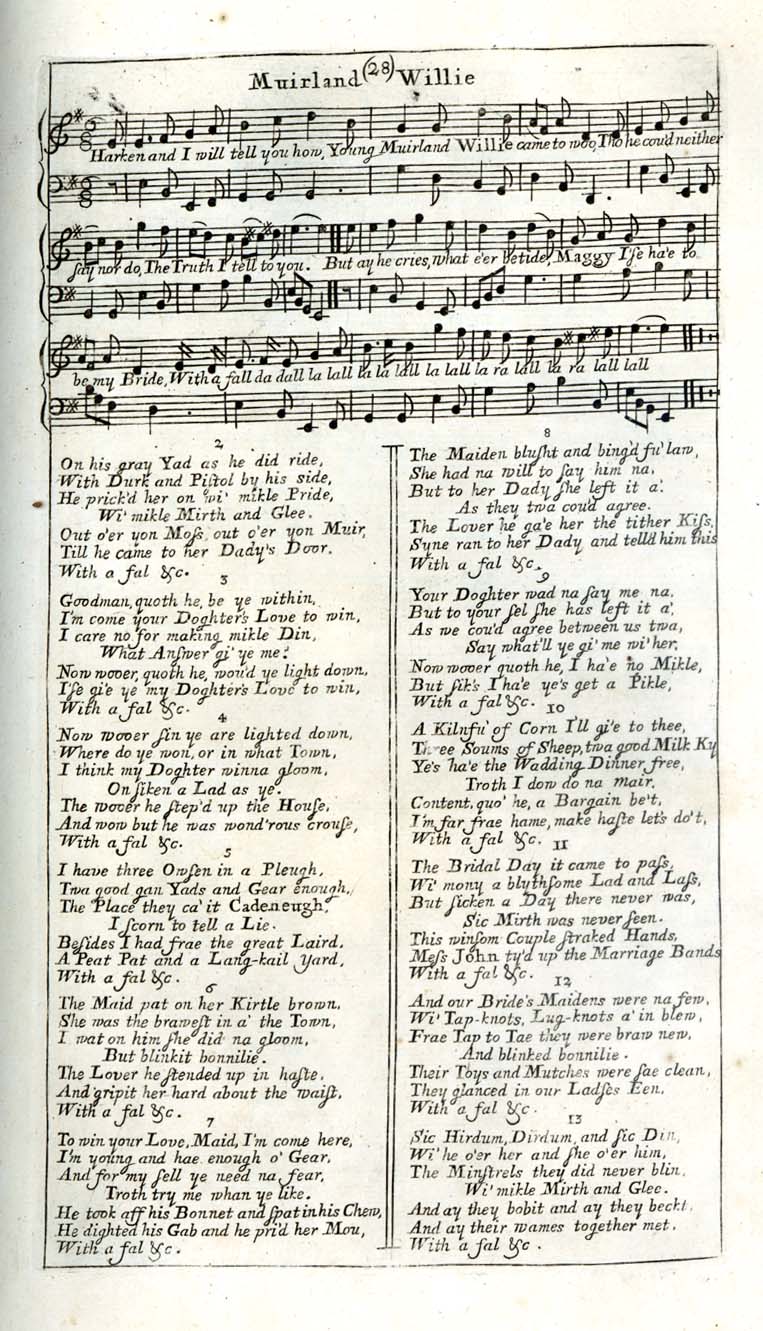 Muirland (28) Willie
Harken and I will tell you how, Young Muirland Willie came to woo, Tho he cou'd neither
ſay nor do, The Truth I tell to you. But ay he cries, what e'er betide, Maggy I'ſe ha'e to
be my Bride, With a fall da dall la lall la la lall la lall la ra lall la ra lall lall
2
On his gray Yad as he did ride,
With Durk and Piſtol by his side,
He prick'd her on wi' mikle Pride,
Wi' mikle Mirth and Glee.
Out o'er yon Moſs, out o'er yon Muir,
Till he came to her Dady's Door.
With a fal &c.
3
Goodman, quoth he, be ye within,
I'm come your Doghter's Love to win,
I care no for making mikle Din,
What Anſwer gi' ye me?
Now wooer, quoth he, wou'd ye light down,
I'ſe gi'e ye my Doghter's Love to win,
With a fal &c.
4
Now wooer ſin ye are lighted down,
Where do ye won, or in what Town,
I think my Doghter winna gloom,
On ſiken a Lad as ye.
The wooer he ſtep'd up the Houſe,
And wow but he was wond'rous crouſe,
With a fal &c.
5
I have three Owſen in a Pleugh,
Twa good gan Yads and Gear enough,
The Place they ca' it Cadeneugh,
I ſcorn to tell a Lie.
Beſides I had frae the great Laird,
A Peat Pat and a Lang-kail Yard,
With a fal &c.
6
The Maid pat on her Kirtle brown,
She was the braweſt in a' the Town,
I wat on him ſhe did na gloom,
But blinkit bonnilie.
The Lover he ſtended up in haſte,
And gripit her hard about the waiſt,
With a fal &c.
7
To win your Love, Maid, I'm come here,
I'm young and hae enough o' Gear,
And for my ſell ye need na fear,
Troth try me whan ye like.
He took aff his Bonnet and ſpat in his Chew,
He dighted his Gab and he pri'd her Mou,
With a fal &c.
8
The Maiden bluſht and bing'd fu' law,
She had na will to ſay him na,
But to her Dady ſhe left it a'.
As they twa cou'd agree.
The Lover he ga'e her the tither Kiſs,
Syne ran to her Dady and tell'd him this
With a fal &c.
9
Your Doghter wad na ſay me na,
But to your ſel ſhe has left it a',
As we cou'd agree between us twa,
Say what'll ye gi' me wi' her.
Now wooer quoth he, I ha'e no Mikle,
But ſik's I ha'e ye's get a Pikle,
With a fal &c.
10
A Kilnfu' of Corn I'll gi'e to thee,
Three Soums of Sheep, twa good Milk Ky
Ye's ha'e the Wadding Dinner free,
Troth I dow do na mair.
Content, quo' he, a Bargain be't,
I'm far frae hame, make haſte let's do't,
With a fal &c.
11
The Bridal Day it came to paſs,
Wi' mony a blythſome Lad and Laſs,
But ſicken a Day there never was,
Sic Mirth was never ſeen.
This winſom Couple ſtraked Hands,
Meſs John ty'd up the Marriage Bands
With a fal &c.
12
And our Bride's Maidens were na few,
Wi' Tap-knots, Lug-knots a' in blew,
Frae Tap to Tae they were braw new,
And blinked bonnilie.
Their Toys and Mutches were ſae clean,
They glanced in our Ladſes Een.
With a fal &c.
13
Sic Hirdum, Dirdum, and ſic Din,
Wi' he o'er her and ſhe o'er him,
The Minſtrels they did never blin,
Wi' mikle Mirth and Glee.
And ay they bobit and ay they beckt,
And ay their wames together met.
With a fal &c.